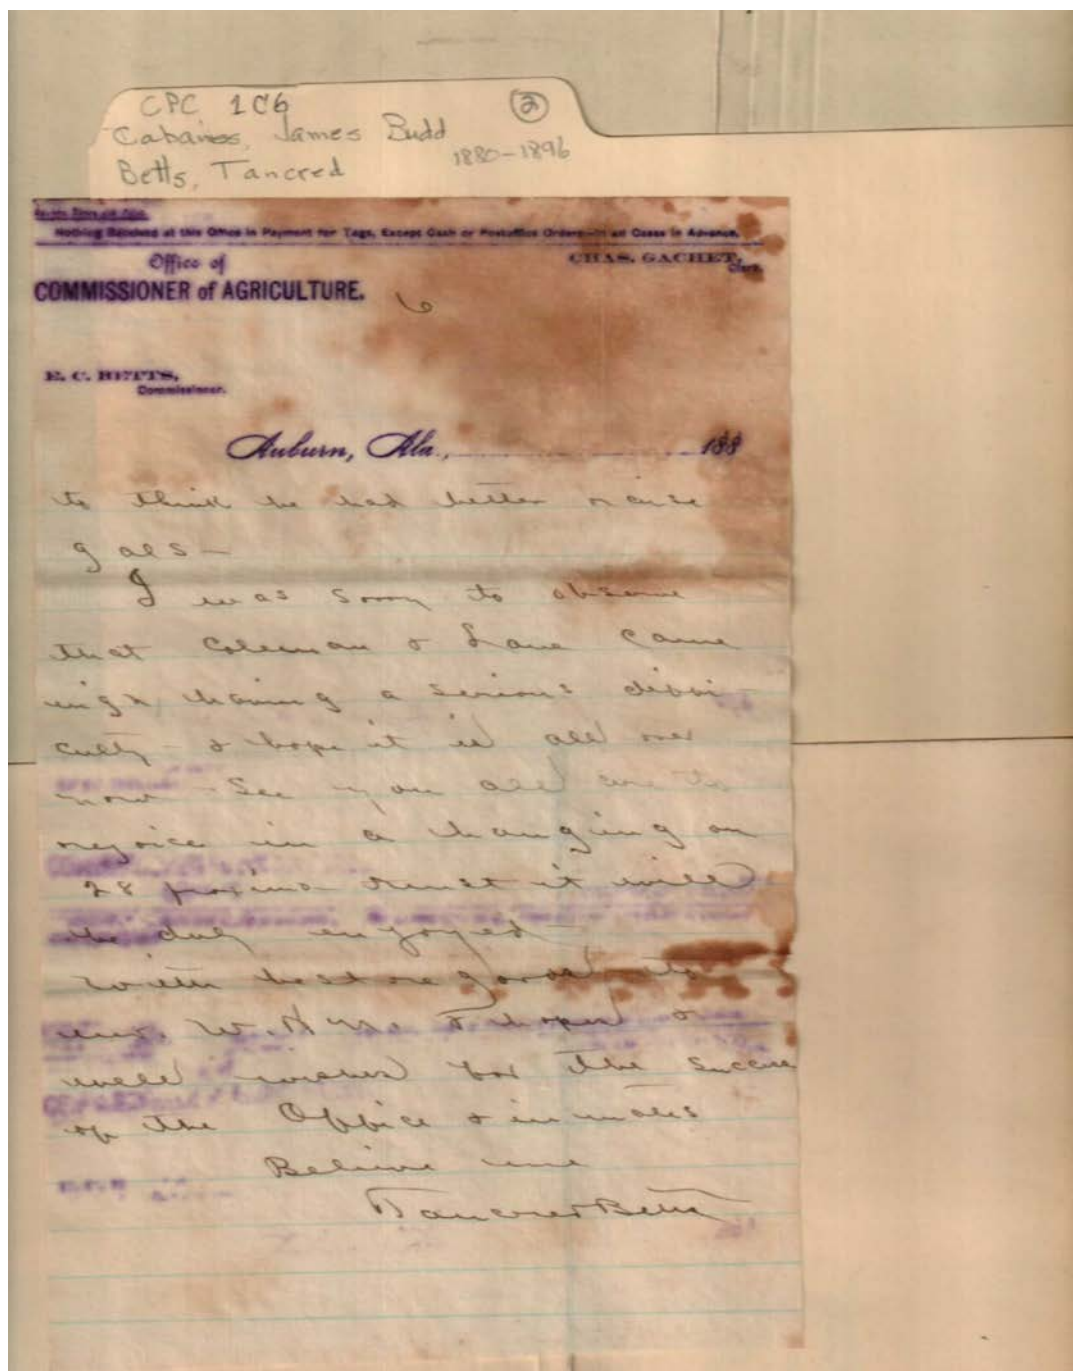 CPC 1C6 ②
Cabaniss, James Budd
1880-1896
Betts, Tancred
Nothing Received at this Office in Payment for Tags, Except Cash or Postoffice Orders—in all Cases in Advance.
Office of CHAS. GACHET,
Clerk.
COMMISSIONER of AGRICULTURE.
6
E. C. BETTS,
Commissioner.
Auburn, Ala., 188
to think he had better raise
goats—
I was sorry to observe
that Coleman & Lane came
nigh having a serious diffi-
culty - & hope it is all over
now - See you all are to
rejoice in a hanging on
28 proximo trust it will
be duly enjoyed—
With best regards to
W. &
well wishes for the success
of the Office & inmates
Believe me
Tancred Betts